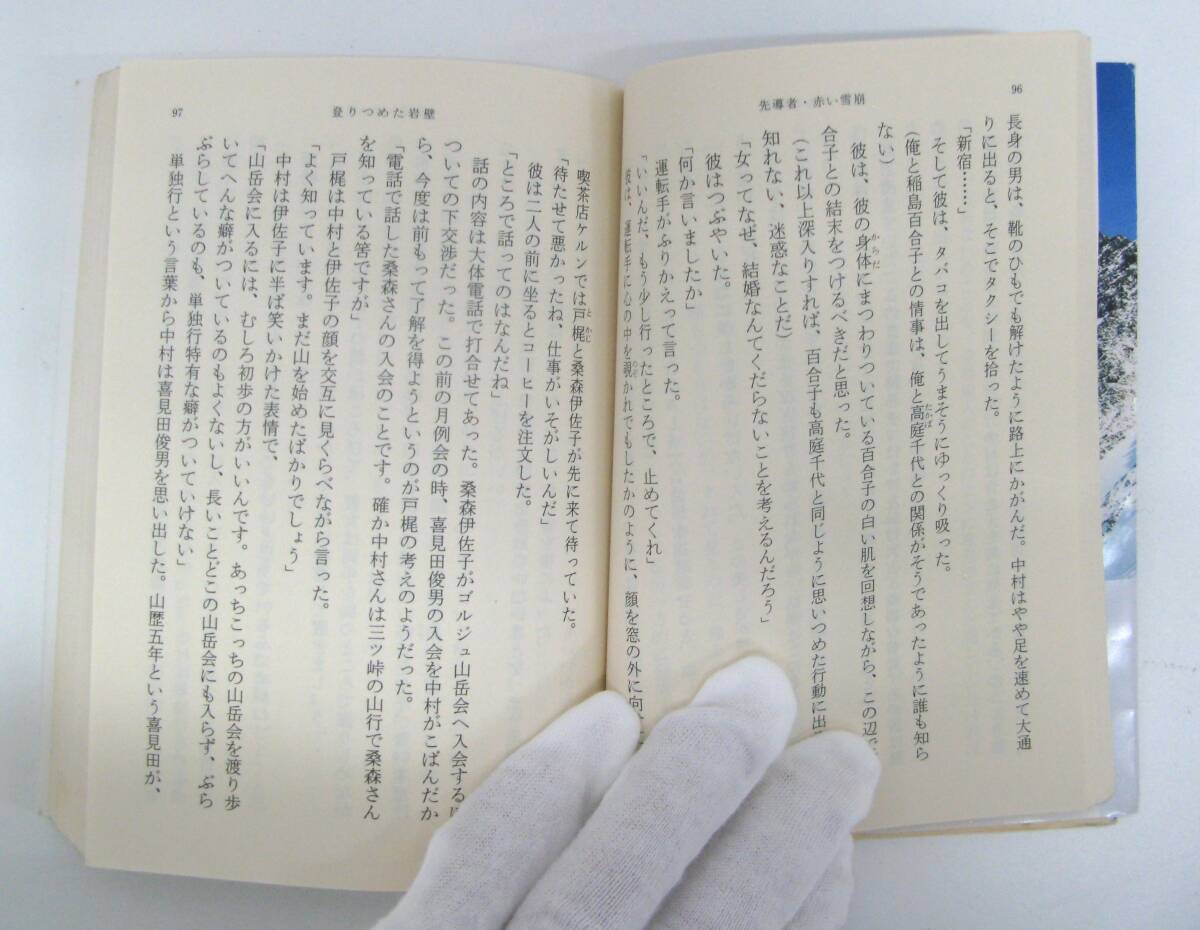 96
先導者・赤い雪崩
長身の男は、靴のひもでも解けたように路上にかがんだ。中村はやや足を速めて大通
りに出ると、そこでタクシーを拾った。
「新宿……」
そして彼は、タバコを出してうまそうにゆっくり吸った。
(俺と稲島百合子との情事は、俺と高庭千代との関係がそうであったように誰も知ら
ない)
彼は、彼の身体にまつわりついている百合子の白い肌を回想しながら、この辺で
合子との結末をつけるべきだと思った。
(これ以上深入りすれば、百合子も高庭千代と同じように思いつめた行動に出
知れない、迷惑なことだ)
「女ってなぜ、結婚なんてくだらないことを考えるんだろう」
彼はつぶやいた。
「何か言いましたか」
運転手がふりかえって言った。
「いいんだ、もう少し行ったところで、止めてくれ」
彼は、運転手に心の中を覗かれでもしたかのように、顔を窓の外に向
97
登りつめた岩壁
喫茶店ケルンでは戸梶と桑森伊佐子が先に来て待っていた。
「待たせて悪かったね、仕事がいそがしいんだ」
彼は二人の前に坐るとコーヒーを注文した。
「ところで話ってのはなんだね」
話の内容は大体電話で打合せてあった。桑森伊佐子がゴルジュ山岳会へ入会する
ついての下交渉だった。この前の月例会の時、喜見田俊男の入会を中村がこばんだか
ら、今度は前もって了解を得ようというのが戸梶の考えのようだった。
「電話で話した桑森さんの入会のことです。確か中村さんは三ツ峠の山行で桑森さん
を知っている筈ですが」
戸梶は中村と伊佐子の顔を交互に見くらべながら言った。
「よく知っています。まだ山を始めたばかりでしょう」
中村は伊佐子に半ば笑いかけた表情で、
「山岳会に入るには、むしろ初歩の方がいいんです。あっちこっちの山岳会を渡り歩
いてへんな癖がついているのもよくないし、長いことどこの山岳会にも入らず、ぶら
ぶらしているのも、単独行特有な癖がついていけない」
単独行という言葉から中村は喜見田俊男を思い出した。山歴五年という喜見田が、